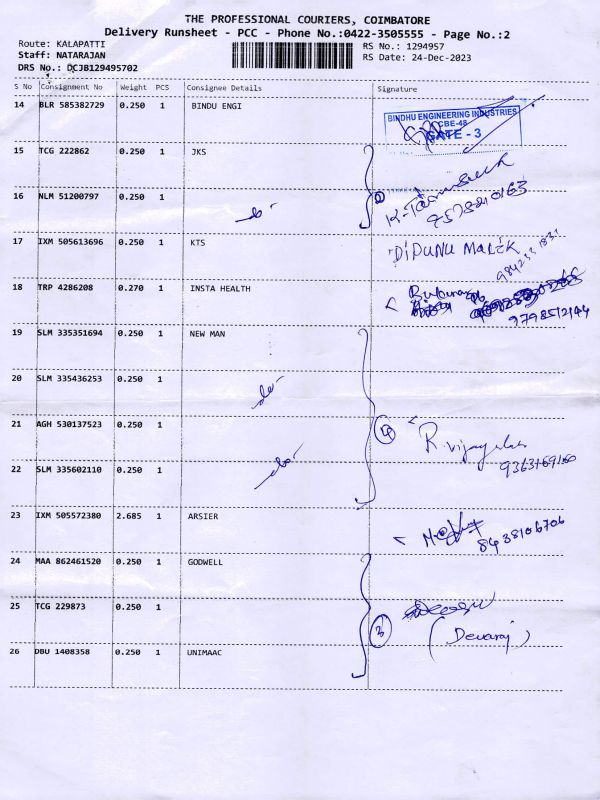 THE PROFESSIONAL COURIERS, COIMBATORE
Delivery Runsheet - PCC - Phone No.:0422-3505555 - Page No.:2
Route: KALAPATTI
RS No.: 1294957
Staff: NATARAJAN
RS Date: 24-Dec-2023
DRS No.: DCJB129495702
S No Consignment No Weight PCS Consignee Details Signature
14 BLR 585382729 0.250 1 BINDU ENGI
BINDHU ENGINEERING INDUSTRIES
CBE-48
GATE - 3
15 TCG 222862 0.250 1 JKS
16 NLM 51200797 0.250 1
17 IXM 505613696 0.250 1 KTS
DIPUNU MALIK
18 TRP 4286208 0.270 1 INSTA HEALTH
9798512144
19 SLM 335351694 0.250 1 NEW MAN
20 SLM 335436253 0.250 1
21 AGH 530137523 0.250 1
4
R. Vijay
22 SLM 335602110 0.250 1
23 IXM 505572380 2.685 1 ARSIER
8438106706
24 MAA 862461520 0.250 1 GODWELL
25 TCG 229873 0.250 1
3
(Devaraj)
26 DBU 1408358 0.250 1 UNIMAAC